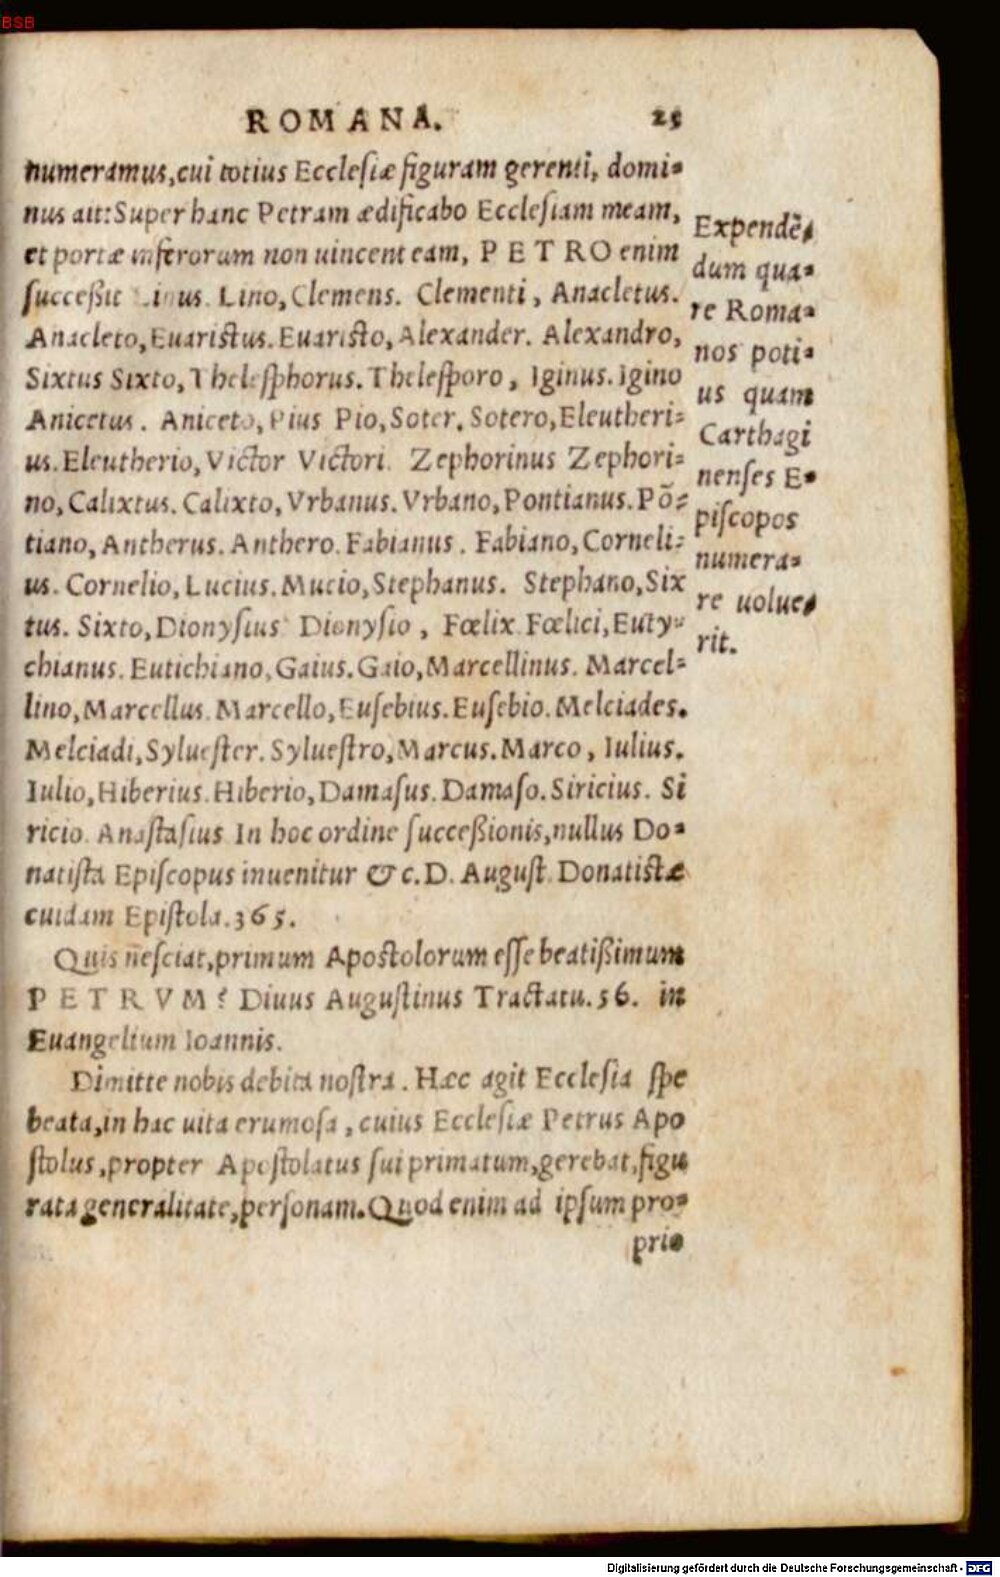 BSB
ROMANA. 25
numeramus, cui totius Ecclesiæ figuram gerenti, domi-
nus ait: Super hanc Petram ædificabo Ecclesiam meam,
et portæ inferorum non uincent eam, PETRO enim
successit Linus. Lino, Clemens. Clementi, Anacletus.
Anacleto, Euaristus. Euaristo, Alexander. Alexandro,
Sixtus Sixto, Thelesphorus. Thelesporo, Iginus. Igino
Anicetus. Aniceto, Pius Pio, Soter. Sotero, Eleutheri-
us. Eleutherio, Victor Victori. Zephorinus Zephori-
no, Calixtus. Calixto, Vrbanus. Vrbano, Pontianus. Põ-
tiano, Antherus. Anthero. Fabianus. Fabiano, Corneli-
us. Cornelio, Lucius. Mucio, Stephanus. Stephano, Six
tus. Sixto, Dionysius Dionysio, Fœlix Fœlici, Euty-
chianus. Eutichiano, Gaius. Gaio, Marcellinus. Marcel-
lino, Marcellus. Marcello, Eusebius. Eusebio. Melciades.
Melciadi, Syluester. Syluestro, Marcus. Marco, Iulius.
Iulio, Hiberius. Hiberio, Damasus. Damaso. Siricius. Si
ricio. Anastasius In hoc ordine successionis, nullus Do-
natista Episcopus inuenitur & c. D. August. Donatistæ
cuidam Epistola. 365.
Quis nesciat, primum Apostolorum esse beatissimum
PETRVM? Diuus Augustinus Tractatu. 56. in
Euangelium Ioannis.
Dimitte nobis debita nostra. Hæc agit Ecclesia spe
beata, in hac uita erumosa, cuius Ecclesiæ Petrus Apo
stolus, propter Apostolatus sui primatum, gerebat, figu
rata generalitate, personam. Quod enim ad ipsum pro-
prie
Expendẽ-
dum qua-
re Roma-
nos poti-
us quam
Carthagi
nenses E-
piscopos
numera-
re uolue-
rit.
Digitalisierung gefördert durch die Deutsche Forschungsgemeinschaft - DFG